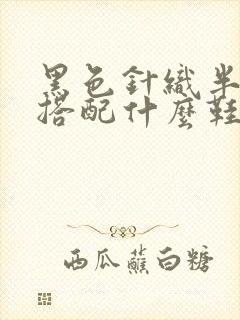 黑色針織半
搭配什麼鞋
西瓜蘸白糖